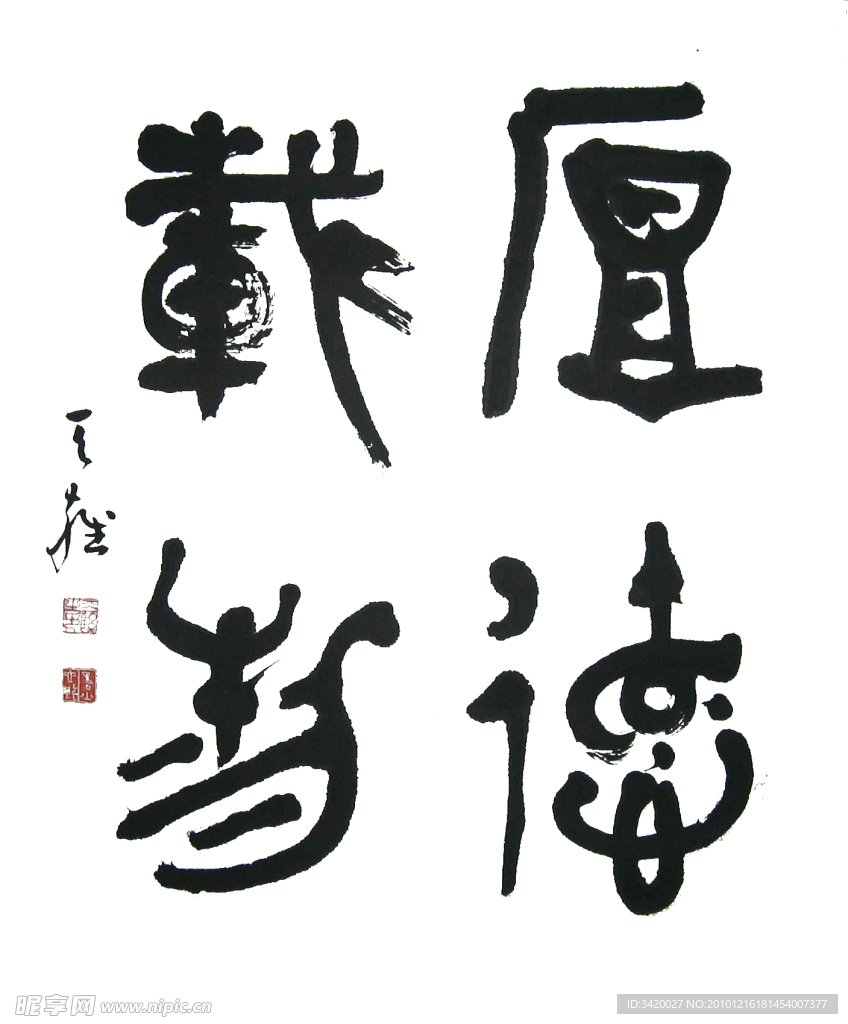 厚德
載物
昵享网 www.nipic.cn
ID:3420027 NO:20101216181454007377